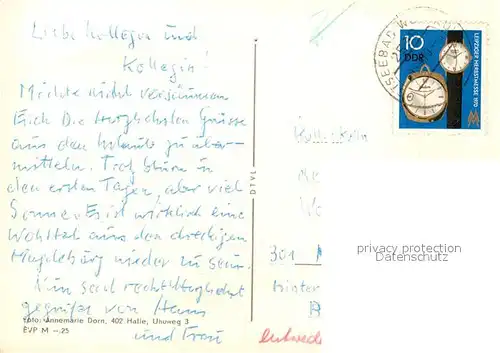 Liebe Kollegen und
Kollegin!
Möchte nicht versäumen
Euch die herzlichsten Grüsse
aus dem Urlaub zu über-
mitteln. Trotz
den ersten Tagen, aber viel
Sonne. Es ist wirklich eine
Wohltat aus dem dreckigen
Magdeburg wieder zu sein.
Nun seid recht herzlichst
gegrüßt von Hans
und Frau
Foto: Annemarie Dorn, 402 Halle, Uhuweg 3
EVP M —.25
DTVL
TSEEBAD
10
DDR
LEIPZIGER HERBSTMESSE 1970
301
privacy protection
Datenschutz
entwed